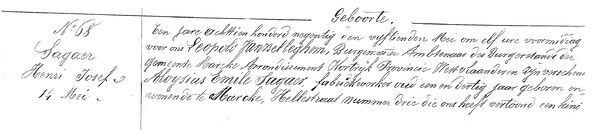 Geboorte.
N° 68
Sagaer
Henri Josef
14 Mei
Ten jare achttien honderd negentig den vijftienden Mei om elf ure voormiddag
voor ons Leopold Ambtenaar des Burgerstands der
gemeente Marcke Arrondissement Kortrijk Provincie West Vlaanderen zijn verschenen
Aloysius Emele Sagaer, fabriekwerker oud een en dertig jaar geboren en
wonende te Marcke, Hellestraat nummer drie die ons heeft vertoond een kind